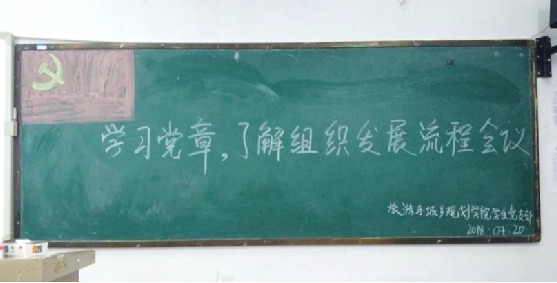 学习党章,了解组织发展流程会议
旅游与城乡规划学院学生党支部
2018.04.20